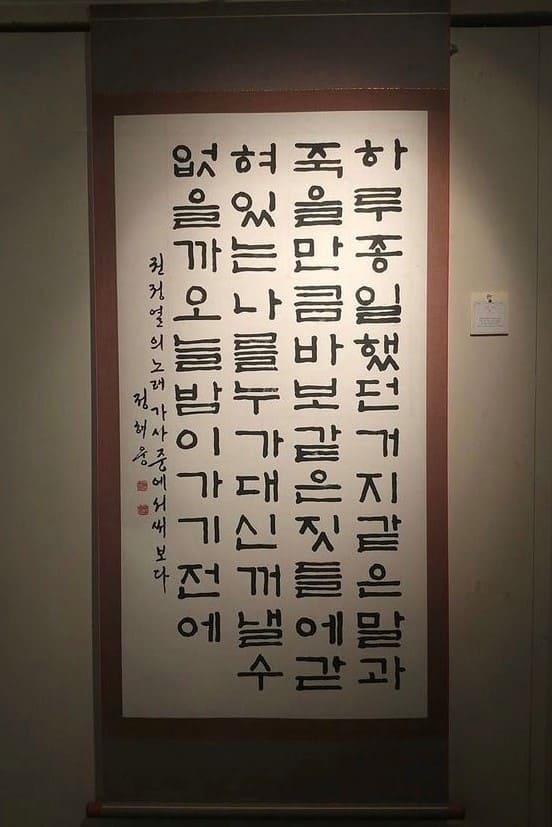 하루종일했던거지같은말과
죽을만큼바보같은짓들에갇
혀있는나를누가대신꺼낼수
없을까오늘밤이가기전에
권정열의노래가사중에서써보다
정해웅